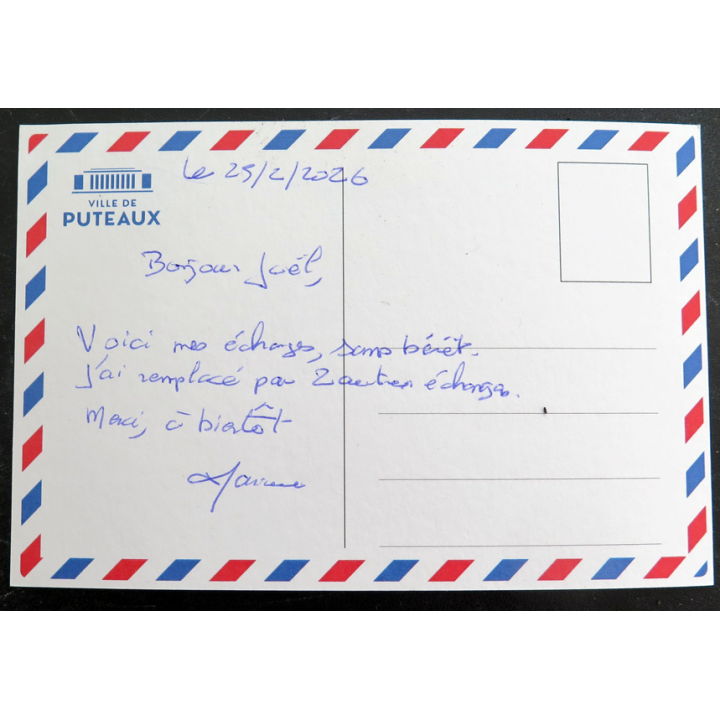 VILLE DE
PUTEAUX
Le 25/2/2026
Bonjour Joël,
Voici mes échanges, sans bérêt.
J'ai remplacé par 2 autres échanges.
Merci, à bientôt